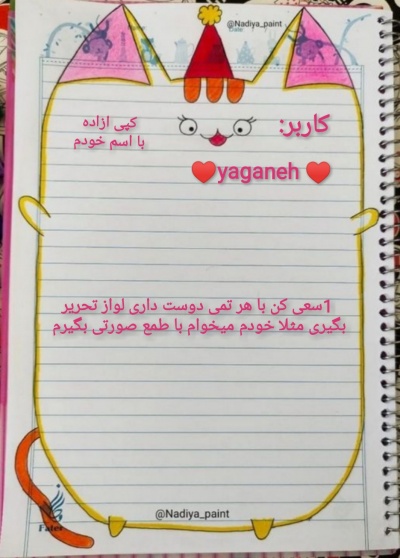 @Nadiya_paint
Date
کاربر:
کپی ازاده
با اسم خودم
♥yaganeh ♥
1سعی کن با هر تمی دوست داری لواز تحریر
بگیری مثلا خودم میخوام با طمع صورتی بگیرم
@Nadiya_paint
Fater